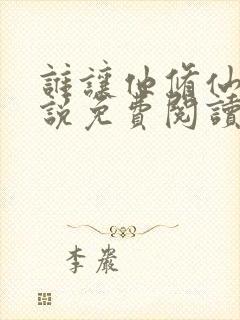 誰讓他修仙
説免費閱讀
李嚴